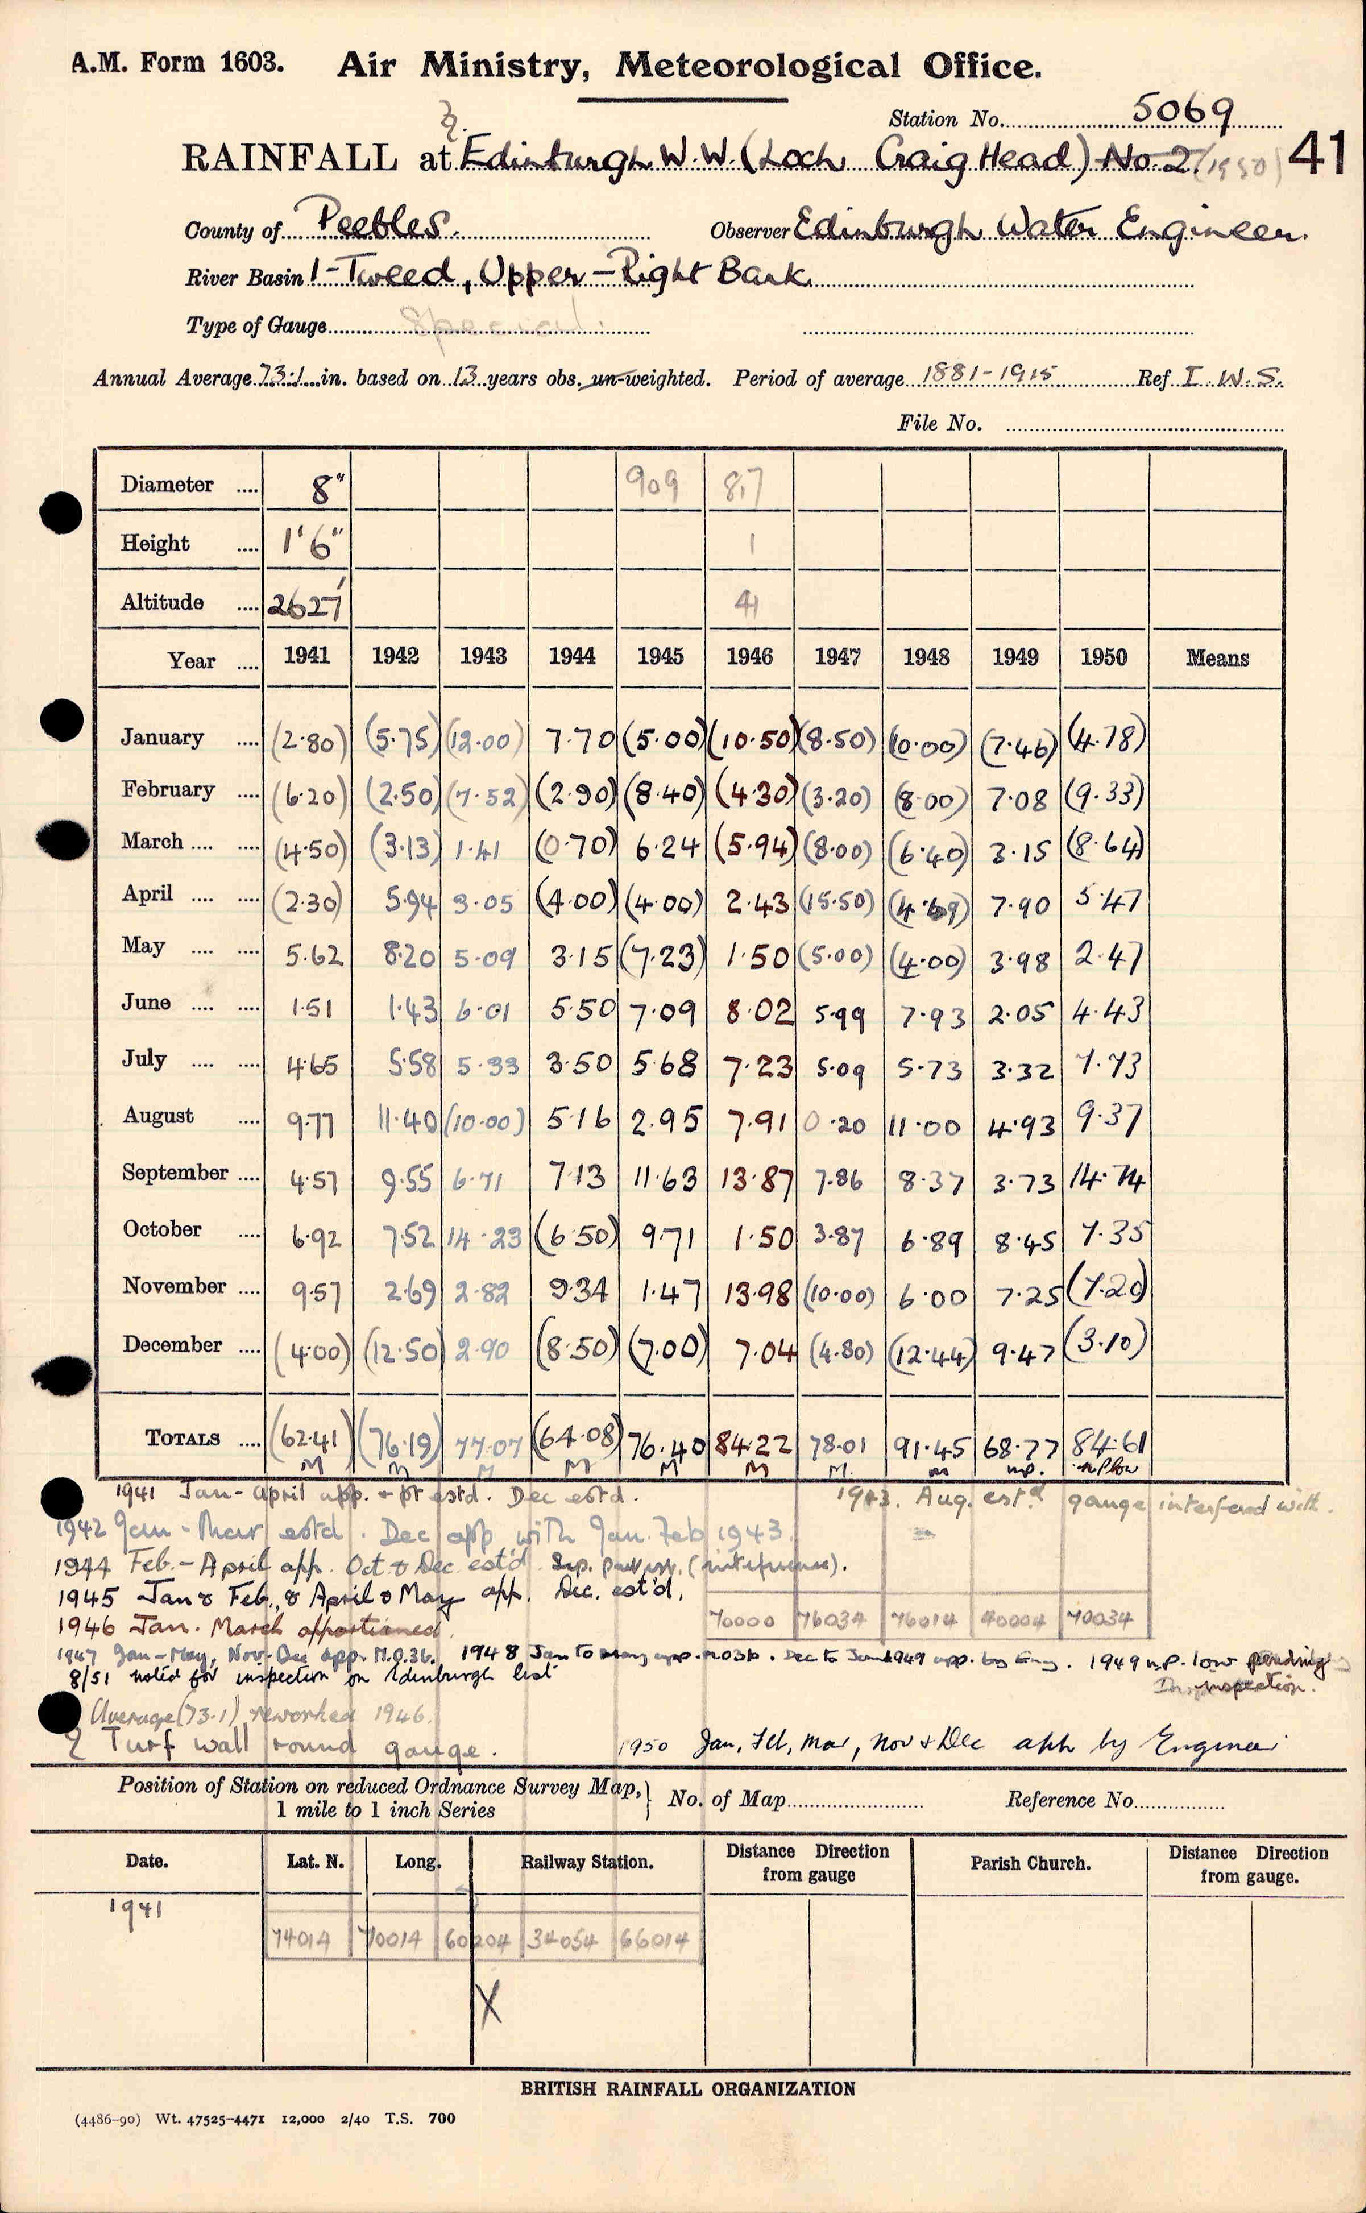 A.M. Form 1603. Air Ministry, Meteorological Office.
Station No. 5069
RAINFALL at Edinburgh W.W. (Loch Craig Head) No. 2 (1950) 41
County of Peebles. Observer Edinburgh Water Engineer.
River Basin 1-Tweed, Upper - Right Bank
Type of Gauge Special.
Annual Average 73.1 in. based on 13 years obs. un-weighted. Period of average 1881-1915 Ref I.W.S.
File No.
Diameter .... 8" 909 8,7
Height .... 1'6" 1
Altitude .... 2627' 41
Year .... 1941 1942 1943 1944 1945 1946 1947 1948 1949 1950 Means
January .... (2.80) (5.75) (12.00) 7.70 (5.00) (10.50) (8.50) (10.00) (7.46) (4.78)
February .... (6.20) (2.50) (7.52) (2.90) (8.40) (4.30) (3.20) (8.00) 7.08 (9.33)
March .... .... (4.50) (3.13) 1.41 (0.70) 6.24 (5.94) (8.00) (6.40) 3.15 (8.64)
April .... .... (2.30) 5.94 3.05 (4.00) (4.00) 2.43 (15.50) (4.69) 7.90 5.47
May .... .... 5.62 8.20 5.09 3.15 (7.23) 1.50 (5.00) (4.00) 3.98 2.47
June .... .... 1.51 1.43 6.01 5.50 7.09 8.02 5.99 7.93 2.05 4.43
July .... .... 4.65 5.58 5.33 3.50 5.68 7.23 5.09 5.73 3.32 7.73
August .... 9.77 11.40 (10.00) 5.16 2.95 7.91 0.20 11.00 4.93 9.37
September .... 4.57 9.55 6.71 7.13 11.63 13.87 7.86 8.37 3.73 14.74
October .... 6.92 7.52 14.23 (6.50) 9.71 1.50 3.87 6.89 8.45 7.35
November .... 9.57 2.69 2.82 9.34 1.47 13.98 (10.00) 6.00 7.25 (7.20)
December .... (4.00) (12.50) 2.90 (8.50) (7.00) 7.04 (4.80) (12.44) 9.47 (3.10)
TOTALS .... (62.41) (76.19) 77.07 (64.08) 76.40 84.22 78.01 91.45 68.77 84.61
M M M M M M M. m n.p. n.p. low
1941 Jan - April app. + pt estd. Dec estd. 1943. Aug. estd gauge interfered with.
1942 Jan - Mar estd. Dec app with Jan. Feb 1943.
1944 Feb. - April app. Oct & Dec est'd. Sep. (interference).
1945 Jan & Feb., & April & May app. Dec. est'd.
70000 76034 76014 40004 70034
1946 Jan. March apportioned.
1947 Jan - May, Nov - Dec app. M.O.3b. 1948 Jan to May app. M.O3b. Dec to Jan 1949 app. by Eng. 1949 n.p. low pending
inspection.
8/51 noted for inspection on Edinburgh list
Average (73.1) reworked 1946.
Turf wall round gauge. 1950 Jan, Feb, Mar, Nov & Dec app by Engineer
Position of Station on reduced Ordnance Survey Map, 1 mile to 1 inch Series } No. of Map Reference No.
Date. Lat. N. Long. Railway Station. Distance from gauge Direction Parish Church. Distance Direction from gauge.
1941
74014 70014 60204 34054 66014
X
BRITISH RAINFALL ORGANIZATION
(4486-90) Wt. 47525-4471 12,000 2/40 T.S. 700